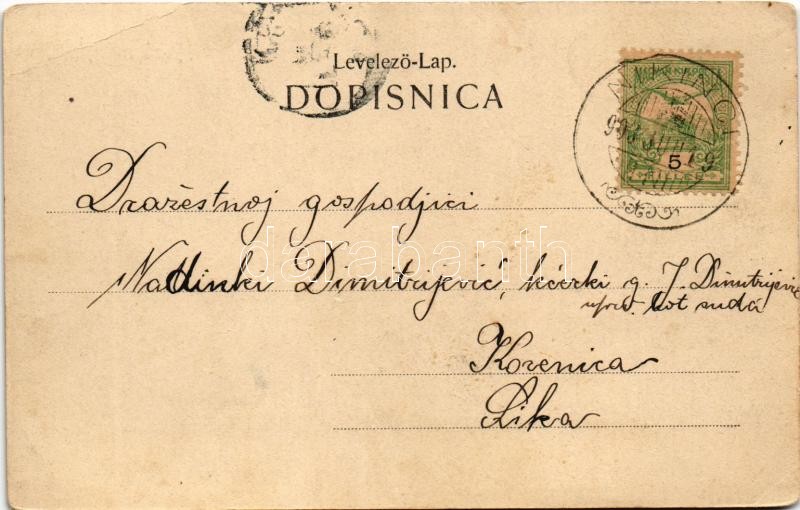 Levelező-Lap.
DOPISNICA
5
FILLÉR
Dražestnoj gospodjici
Nadinki Dimitrijević, kćerki g. J. Dimitrijevića
uprav. kot suda
Korenica
Lika
darabanth